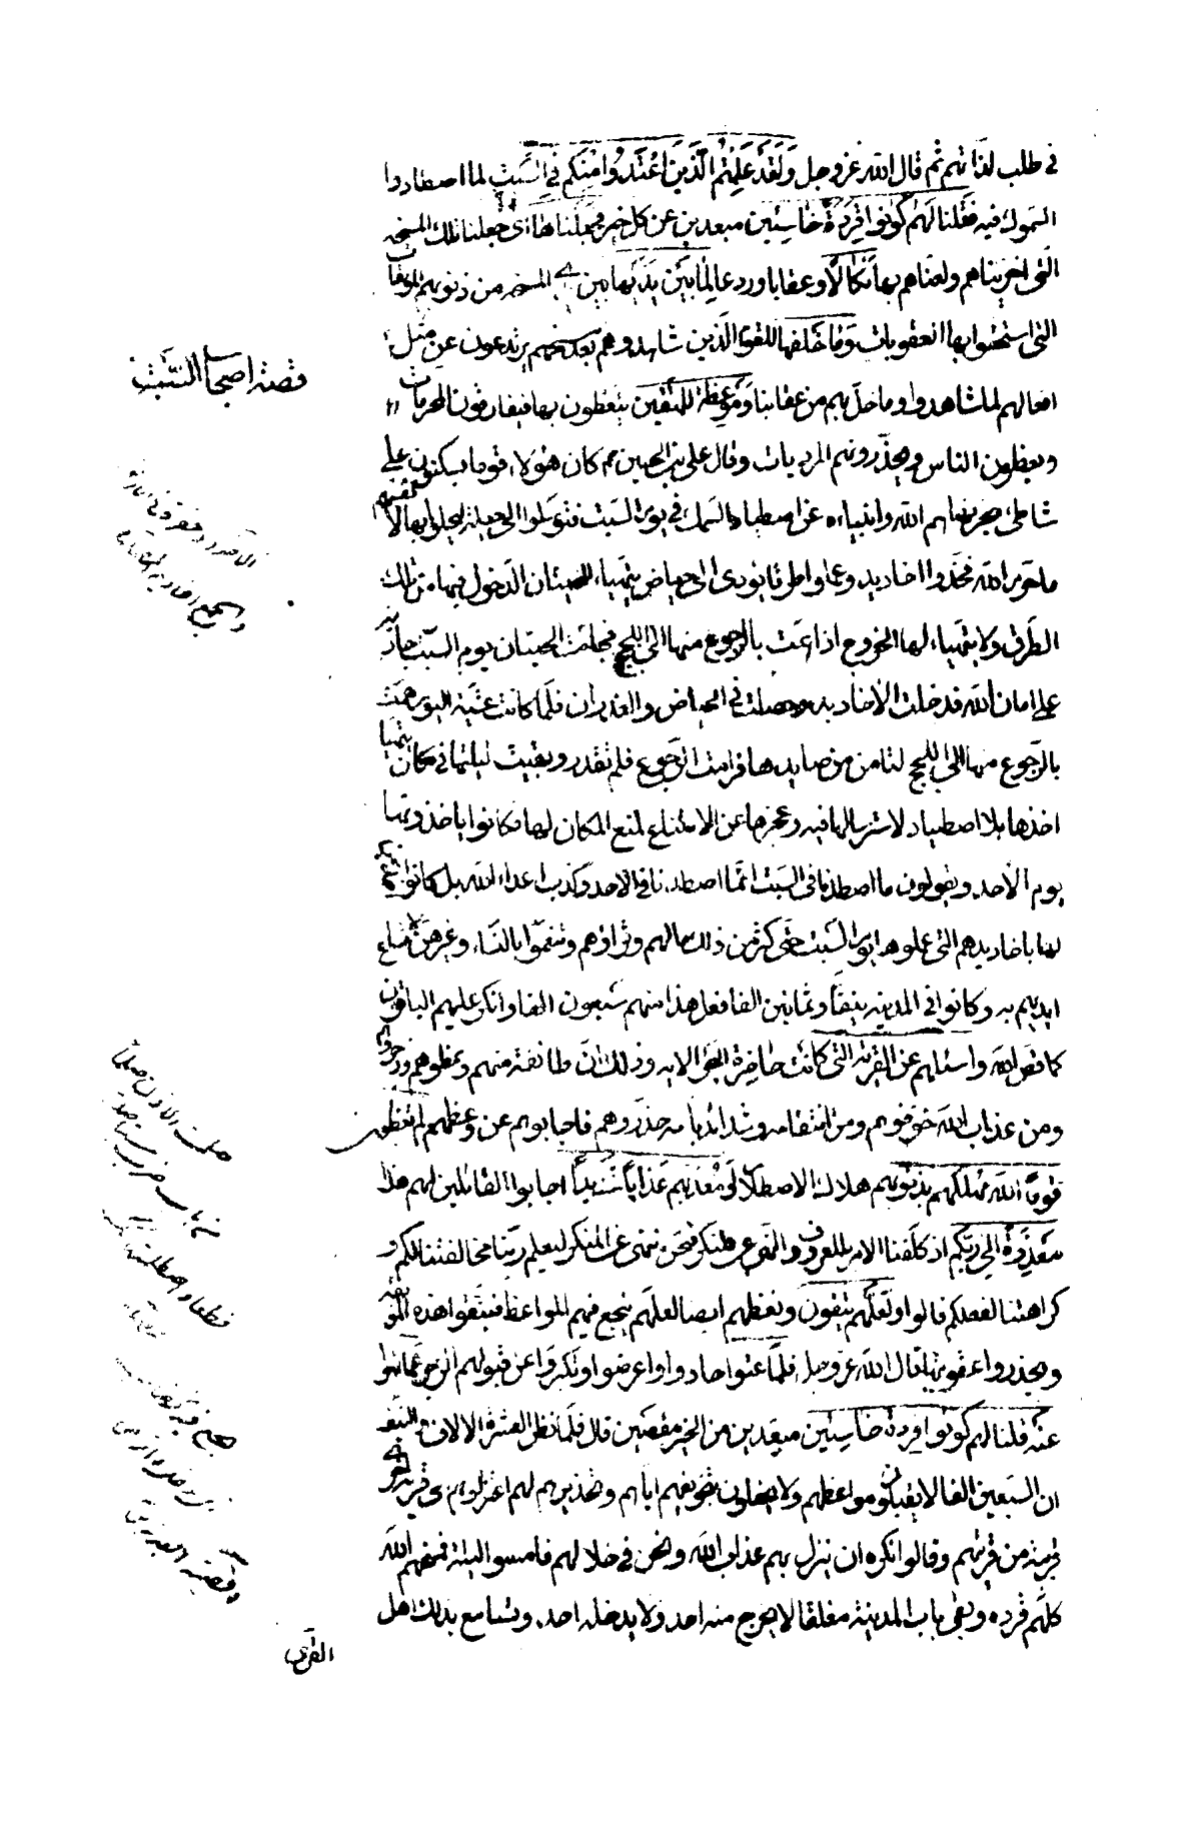 في طلب لذاتهم ثم قال الله عز وجل وَلَقَدْ عَلِمْتُمُ الَّذِينَ اعْتَدَوْا مِنْكُم فِي السَّبْتِ لما اصطادوا
السموك فيه فَقُلْنَا لَهُمْ كُونُوا قِرَدَةً خَاسِئِينَ مبعدين عن كل خير فَجَعَلْنَاهَا اى جعلنا تلك المسخة
التي اخزيناهم ولعناهم بها نَكَالًا وعقابا وردعا لِمَا بَيْنَ يَدَيْهَا بين يدي المسخة من ذنوبهم الموبقات
التي استحقوا بها العقوبات وَمَا خَلْفَهَا للقوم الذين شاهدوهم بعد مسخهم يرتدعون عن مثل
افعالهم لما شاهدوا وما حل بهم من عقابنا وَمَوْعِظَةً لِلْمُتَّقِينَ يتعظون بها فيفارقون المحرمات
ويعظون الناس ويحذرونهم المرديات وقال علي بن الحسين ع كان هؤلاء قوما يسكنون على
شاطئ بحر نهاهم الله وانبياءه عن اصطياد السمك في يوم السبت فتوصلوا الى حيلة ليحلوا بها لانفسهم
ما حرم الله فخدوا اخاديد وعملوا طرقا تؤدى الى حياض يتهيأ للحيتان الدخول فيها من تلك
الطرق ولا يتهيأ لها الخروج اذا همت بالرجوع منها الى اللجج فجاءت الحيتان يوم السبت جارية
على امان الله فدخلت الاخاديد وحصلت في الحياض والغدران فلما كانت عشية اليوم همت
بالرجوع منها الى اللجج لتامن من صايدها فرامت الرجوع فلم تقدر وبقيت ليلتها في مكان يتهيأ
اخذها بلا اصطياد لاسترسالها فيه وعجزها عن الامتناع لمنع المكان لها فكانوا ياخذونها
يوم الاحد ويقولون ما اصطدنا في السبت انما اصطدنا في الاحد وكذب اعداء الله بل كانوا اخذين
لها باخاديدهم التي عملوها يوم السبت حتى كثر من ذلك مالهم وثراؤهم وتنعموا بالنساء وغيرهن لاتساع
ايديهم به وكانوا في المدينة نيفا وثمانين الفا فعل هذا منهم سبعون الفا وانكر عليهم الباقون
كما قص الله واسئلهم عن القرية التي كانت حاضرة البحر الاية وذلك ان طائفة منهم وعظوهم وزجروهم
ومن عذاب الله خوفوهم ومن انتقامه وشدائد باسه حذروهم فاجابوهم عن وعظهم لم تعظون
قوما الله مهلكهم بذنوبهم هلاك الاصطلام او معذبهم عذابا شديدا اجابوا القائلين لهم هذا
معذرة الى ربكم اذ كلفنا الامر بالمعروف والنهي عن المنكر فنحن ننهى عن المنكر ليعلم ربنا مخالفتنا لكم و
كراهتنا لفعلكم قالوا ولعلهم يتقون ونعظهم ايضا لعلهم ينجع فيهم المواعظ فيتقوا هذه الموبقة
ويحذروا عقوبتها قال الله عز وجل فلما عتوا حادوا واعرضوا وتكبروا عن قبولهم الزجر عما نهوا
عنه قلنا لهم كونوا قردة خاسئين مبعدين من الخير مقصين قال فلما نظر العشرة الالاف والنيف
ان السبعين الفا لا يقبلون مواعظهم ولا يحفلون بتخويفهم اياهم وتحذيرهم لهم اعتزلوهم الى قرية اخرى
قريبة من قريتهم وقالوا نكره ان ينزل بهم عذاب الله ونحن في خلالهم فامسوا ليلة فمسخهم الله
كلهم قردة وبقى باب المدينة مغلقا لا يخرج منه احد ولا يدخله احد وتسامع بذلك اهل
القرى
قصة اصحاب السبت